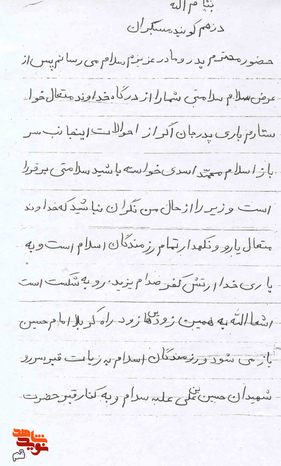 بنام الله
درهم کوبنده مستکبران
حضور محترم پدر و مادر عزیزم سلام می رسانم پس از
عرض سلام سلامتی شما را از درگاه خداوند متعال خوا
ستارم باری پدر جان اگر از احوالات اینجانب سر
باز اسلام محمد اسدی خواسته باشید سلامتی برقرار
است و زیرا از حال من نگران نباشید که خداوند
متعال یار و نگهدار تمام رزمندگان اسلام است و به
یاری خدا ارتش کفر صدام یزید رو به شکست است
انشا الله به همین زودی ها زود راه کربلا امام حسین
باز می شود و رزمندگان اسلام به زیارت قبر سرو
شهیدان حسین بن علی علیه سلام و به کنار قبر حضرت
شاهد
نوید